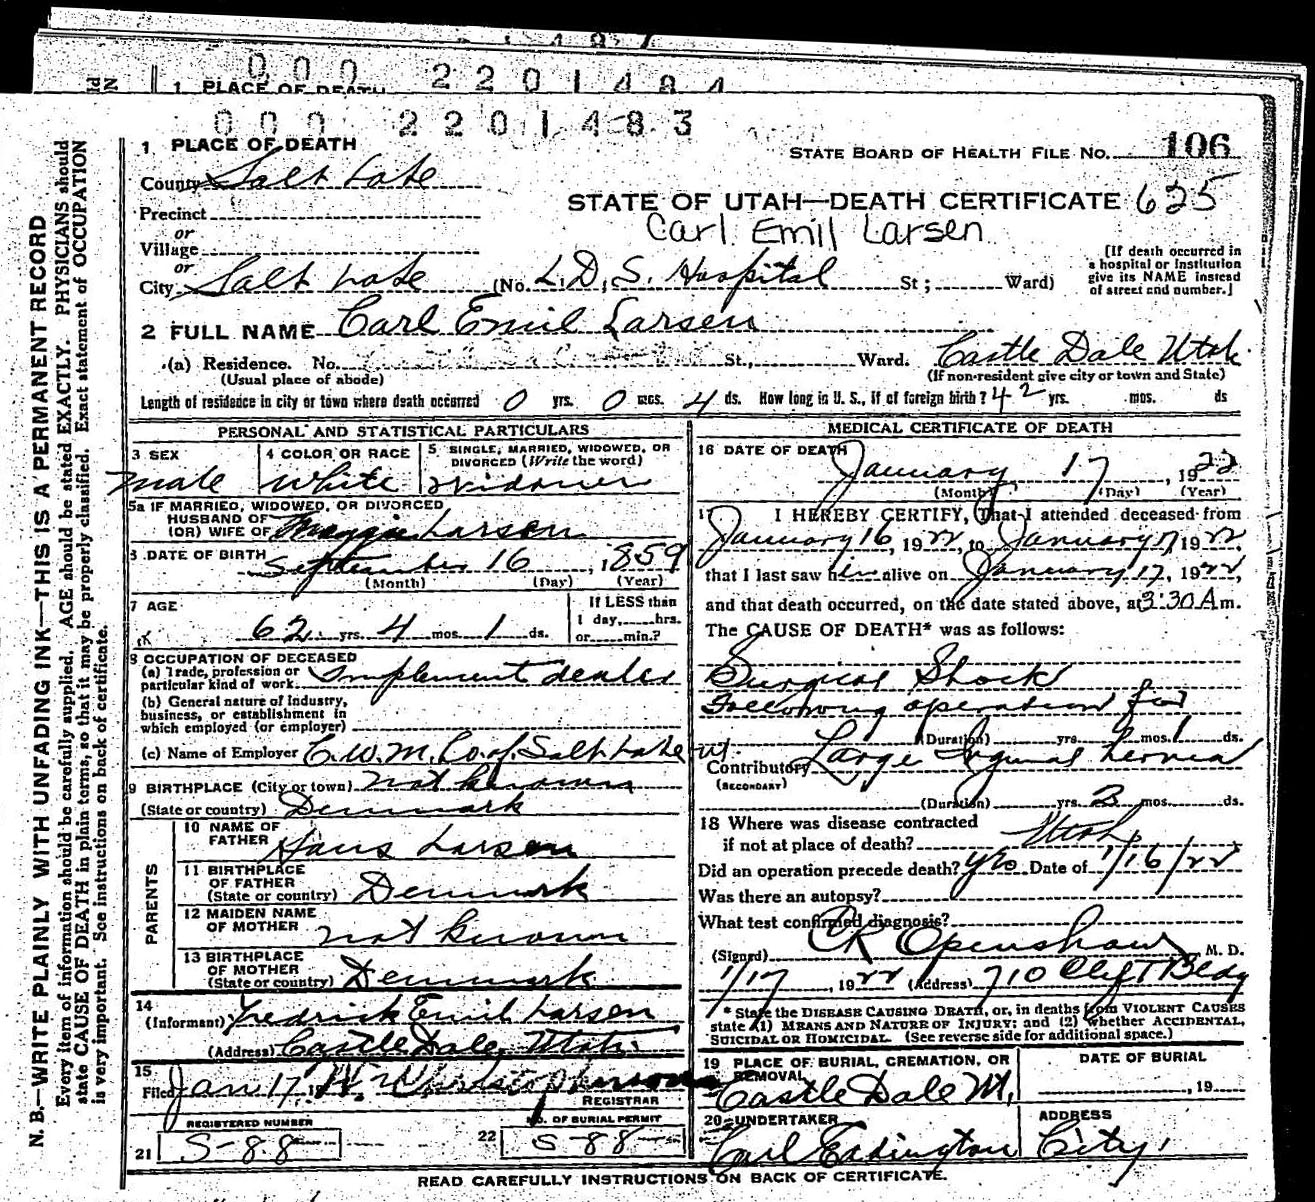 1 4 8
0 0 0 2 2 0 1 4 8 4
1 PLACE OF DEATH
0 0 0 2 2 0 1 4 8 3
1 PLACE OF DEATH
STATE BOARD OF HEALTH FILE NO. 106
County Salt Lake
STATE OF UTAH—DEATH CERTIFICATE 625
Precinct
Carl Emil Larsen
or
Village
or
City Salt Lake (No. L.D.S. Hospital St; Ward)
[If death occurred in
a hospital or Institution
give its NAME instead
of street and number.]
2 FULL NAME Carl Emil Larsen
(a) Residence. No. St., Ward. Castle Dale Utah
(Usual place of abode) (If non-resident give city or town and State)
Length of residence in city or town where death occurred 0 yrs. 0 mos. 4 ds. How long in U. S., if of foreign birth? 42 yrs. mos. ds
PERSONAL AND STATISTICAL PARTICULARS
3 SEX
Male
4 COLOR OR RACE
White
5 SINGLE, MARRIED, WIDOWED, OR
DIVORCED (Write the word)
Widower
5a IF MARRIED, WIDOWED, OR DIVORCED
HUSBAND OF
(OR) WIFE OF Maggie Larsen
6 DATE OF BIRTH
September 16, 1859
(Month) (Day) (Year)
7 AGE
62 yrs. 4 mos. 1 ds.
If LESS than
1 day, hrs.
or min.?
8 OCCUPATION OF DECEASED
(a) Trade, profession or
particular kind of work Implement dealer
(b) General nature of Industry,
business, or establishment in
which employed (or employer)
(c) Name of Employer C.W.M. Co. of Salt Lake
9 BIRTHPLACE (City or town) not known
(State or country) Denmark
PARENTS
10 NAME OF
FATHER Hans Larsen
11 BIRTHPLACE
OF FATHER
(State or country) Denmark
12 MAIDEN NAME
OF MOTHER not known
13 BIRTHPLACE
OF MOTHER
(State or country) Denmark
14
(Informant) Fredrick Emil Larsen
(Address) Castle Dale, Utah
15
Filed Jan 17, 19
REGISTRAR
REGISTERED NUMBER
21 S-88
NO. OF BURIAL PERMIT
22 S-88
MEDICAL CERTIFICATE OF DEATH
16 DATE OF DEATH
January 17, 1922
(Month) (Day) (Year)
17 I HEREBY CERTIFY, That I attended deceased from
January 16, 1922, to January 17 1922,
that I last saw him alive on January 17, 1922,
and that death occurred, on the date stated above, at 3:30 A m.
The CAUSE OF DEATH* was as follows:
Surgical Shock
Following operation for
(Duration) yrs. mos. 1 ds.
Contributory Large Inguinal hernia
(SECONDARY)
(Duration) yrs. mos. ds.
18 Where was disease contracted
if not at place of death? Utah
Did an operation precede death? yes Date of 1/16/22
Was there an autopsy?
What test confirmed diagnosis?
(Signed) CR Openshaw M. D.
1/17, 1922 (Address) 710 Clift Bldg
* State the DISEASE CAUSING DEATH, or, in deaths from VIOLENT CAUSES
state (1) MEANS AND NATURE OF INJURY; and (2) whether ACCIDENTAL,
SUICIDAL OR HOMICIDAL. (See reverse side for additional space.)
19 PLACE OF BURIAL, CREMATION, OR
REMOVAL
Castle Dale Ut.
DATE OF BURIAL
, 19
20 UNDERTAKER
Carl Eadington
ADDRESS
City
READ CAREFULLY INSTRUCTIONS ON BACK OF CERTIFICATE.
N. B.—WRITE PLAINLY WITH UNFADING INK—THIS IS A PERMANENT RECORD
Every item of information should be carefully supplied. AGE should be stated EXACTLY. PHYSICIANS should
state CAUSE OF DEATH in plain terms, so that it may be properly classified. Exact statement of OCCUPATION
is very important. See instructions on back of certificate.